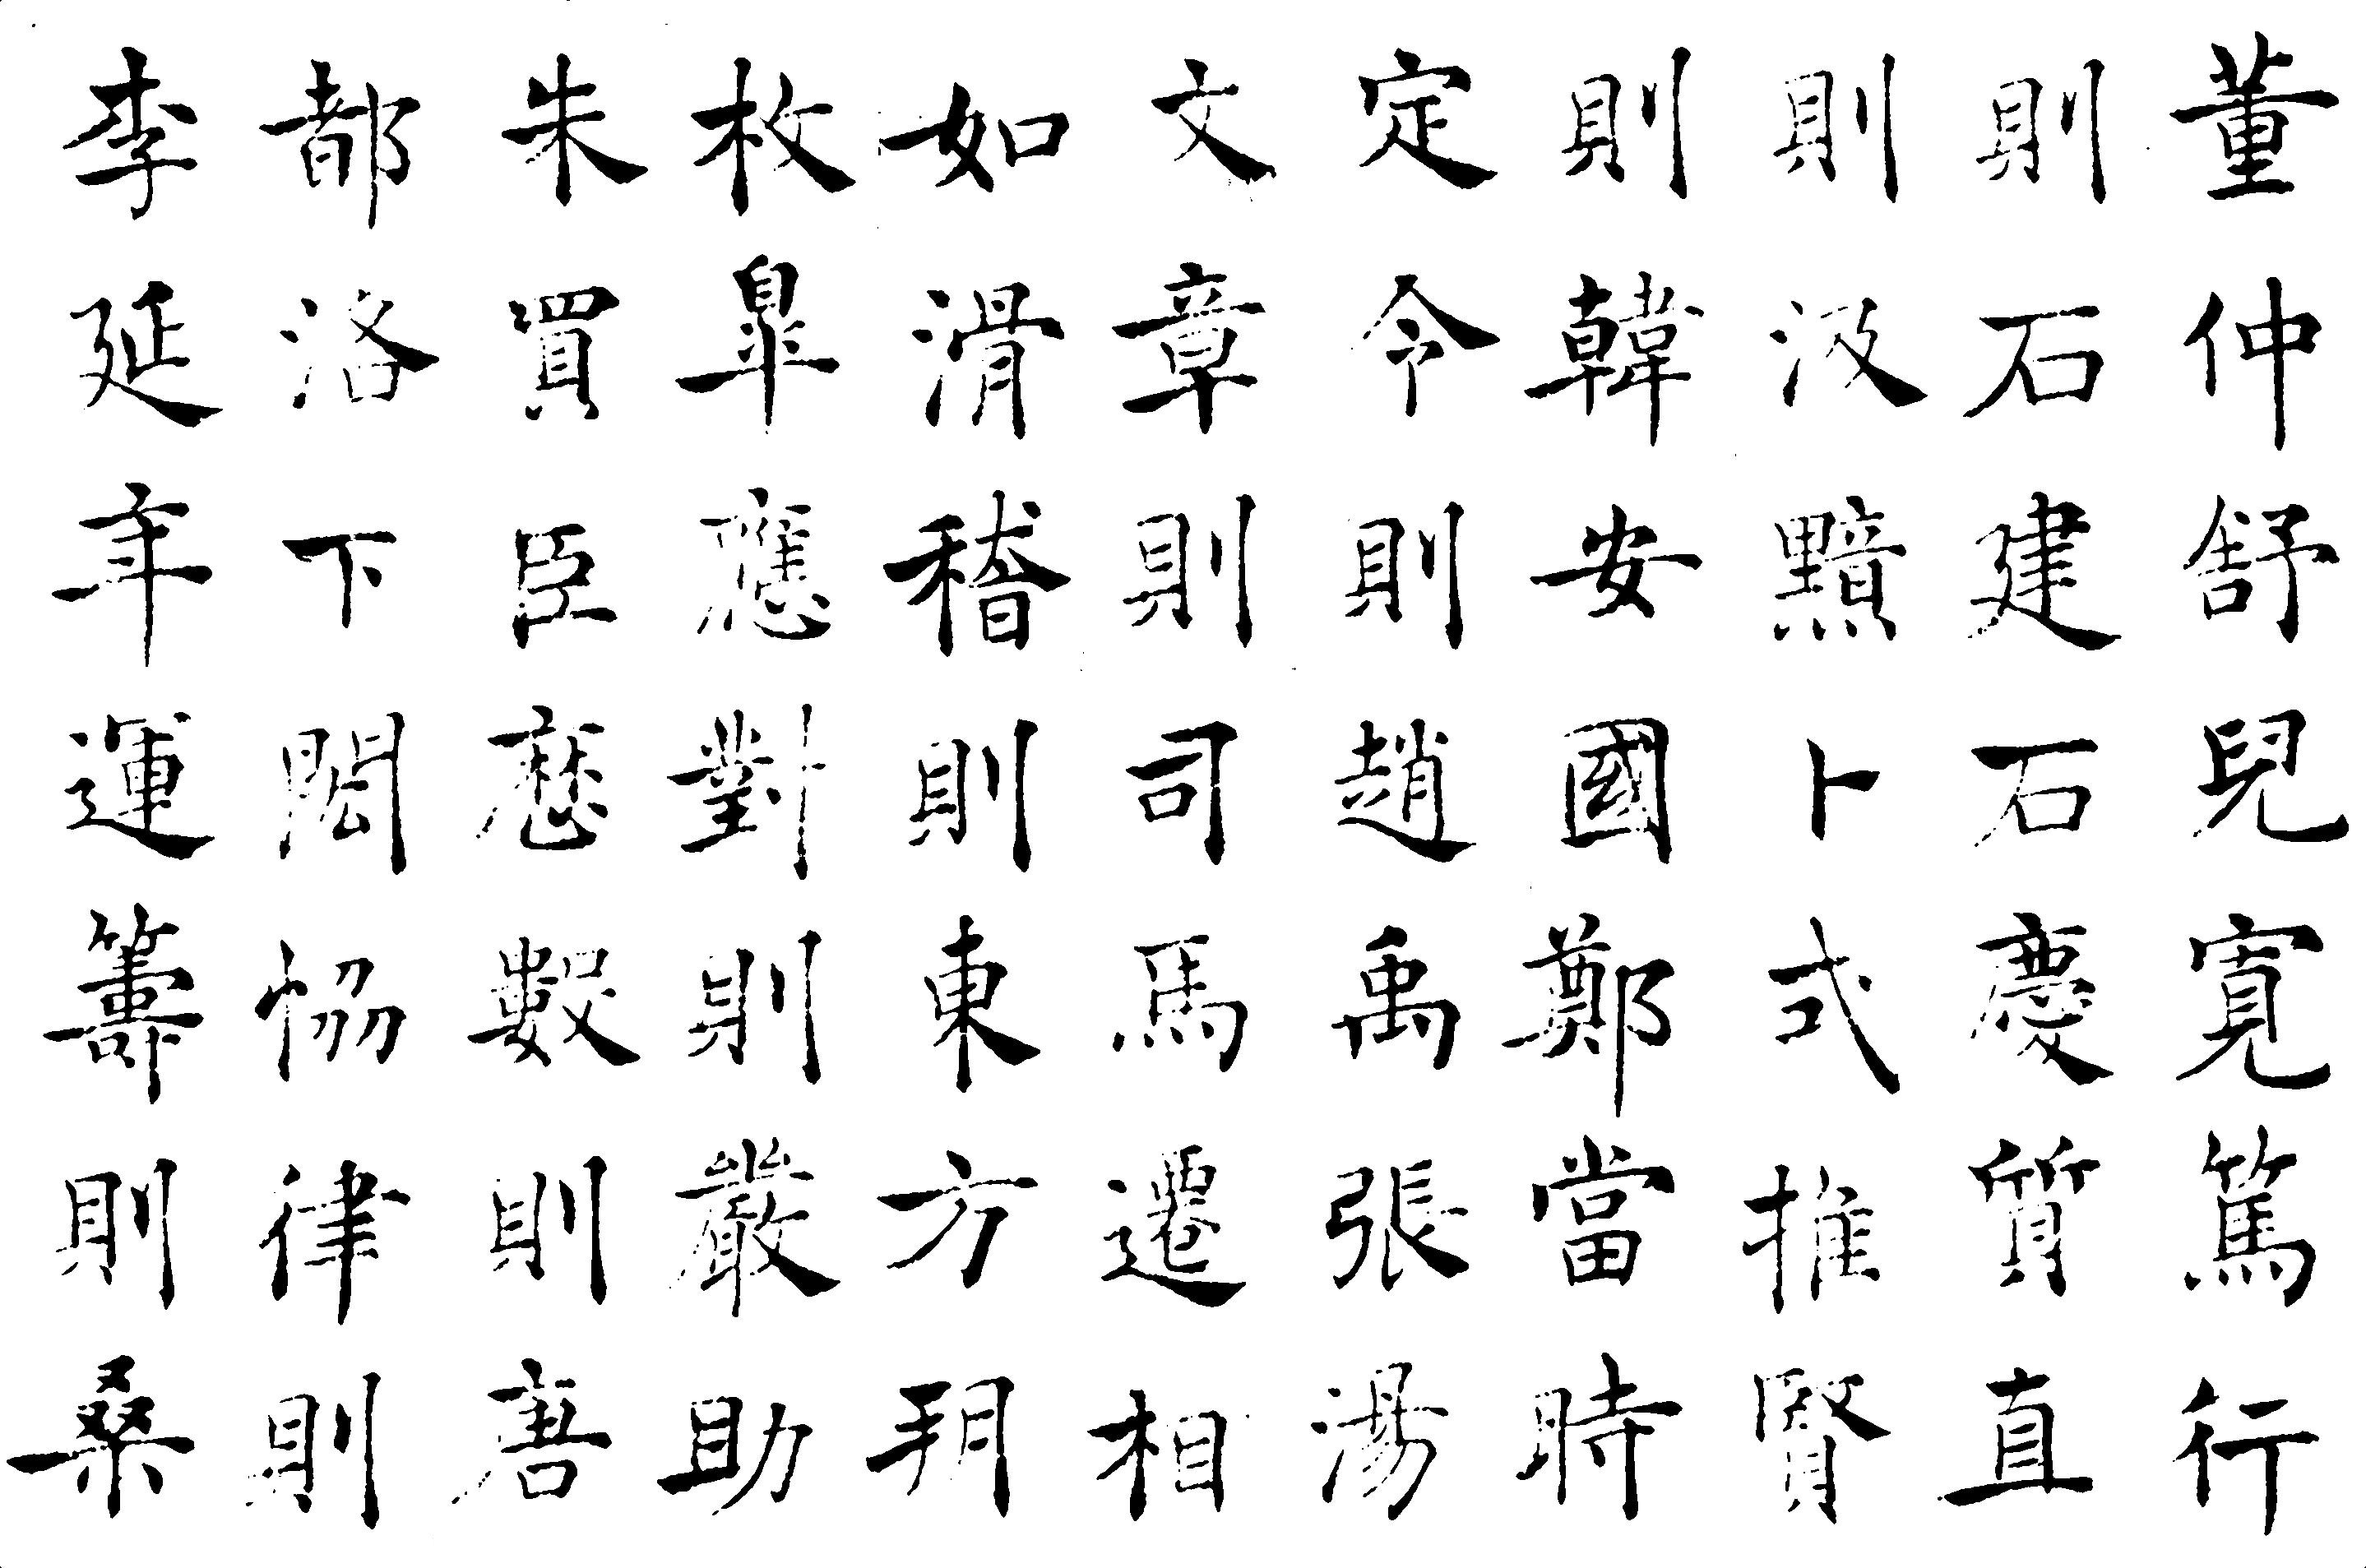 董仲舒兒寬篤行
則石建石慶質直
則汲黯卜式推賢
則韓安國鄭當時
定令則趙禹張湯
文章則司馬遷相
如滑稽則東方朔
枚皋應對則嚴助
朱買臣曆數則唐
都洛下閎協律則
李延年運籌則桑